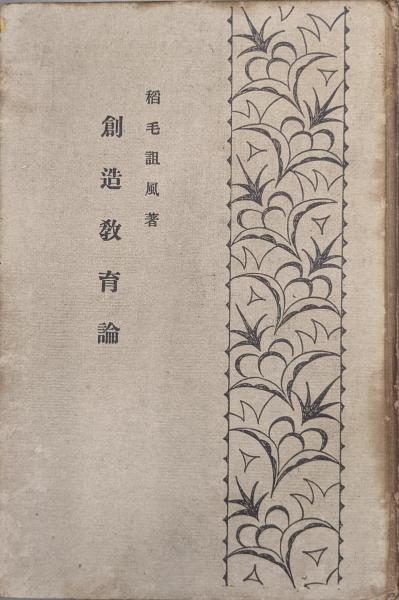 稻毛詛風著
創造敎育論